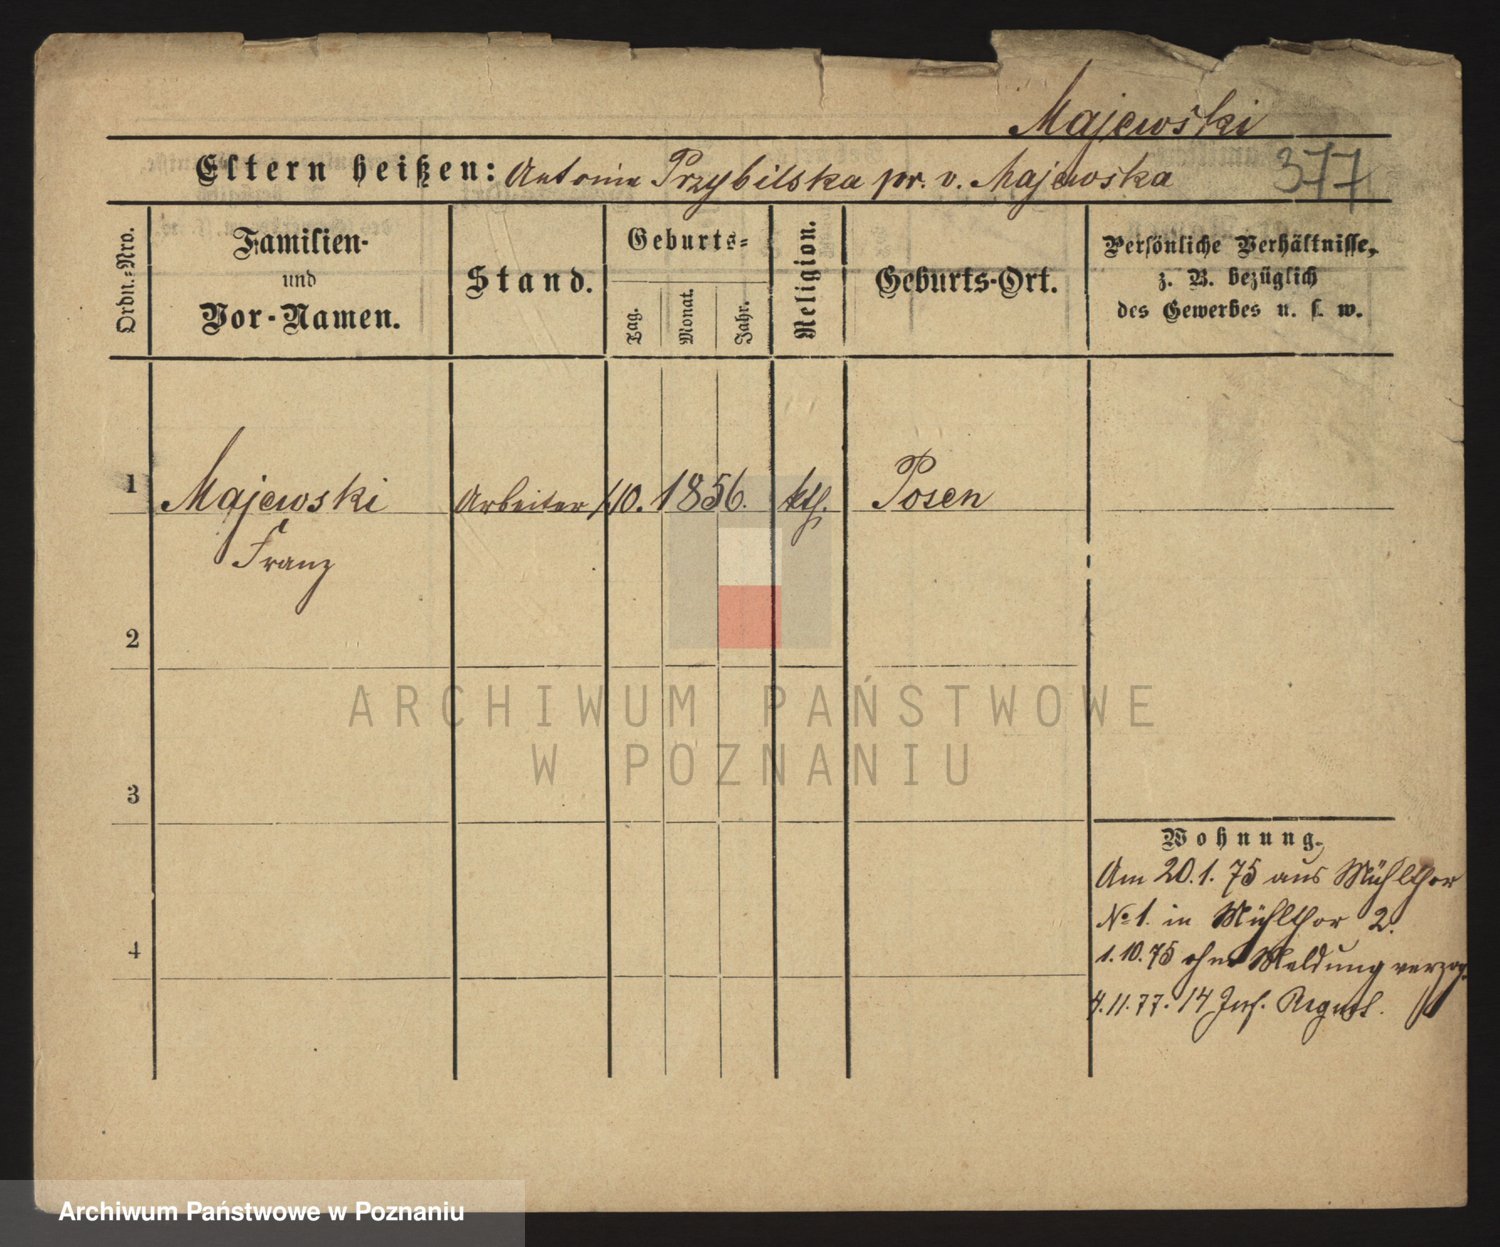 Majewski
377
Eltern heißen: Antonie Przybilska pr. v. Majewska
Ordn.-Nro.
Familien-
und
Vor-Namen.
Stand.
Geburts-
Tag.
Monat.
Jahr.
Religion.
Geburts-Ort.
Persönliche Verhältnisse,
z. B. bezüglich
des Gewerbes u. s. w.
1 Majewski Arbeiter 10. 1856. kth. Posen
Franz
2
3
4
Wohnung.
Am 20.1.75 aus Mühlthor
No 1. in Mühlthor 2.
1.10.75 ohne Meldung verzog.
4.11.77. 14 Inf. Regmt.
ARCHIWUM PAŃSTWOWE
W POZNANIU
Archiwum Państwowe w Poznaniu